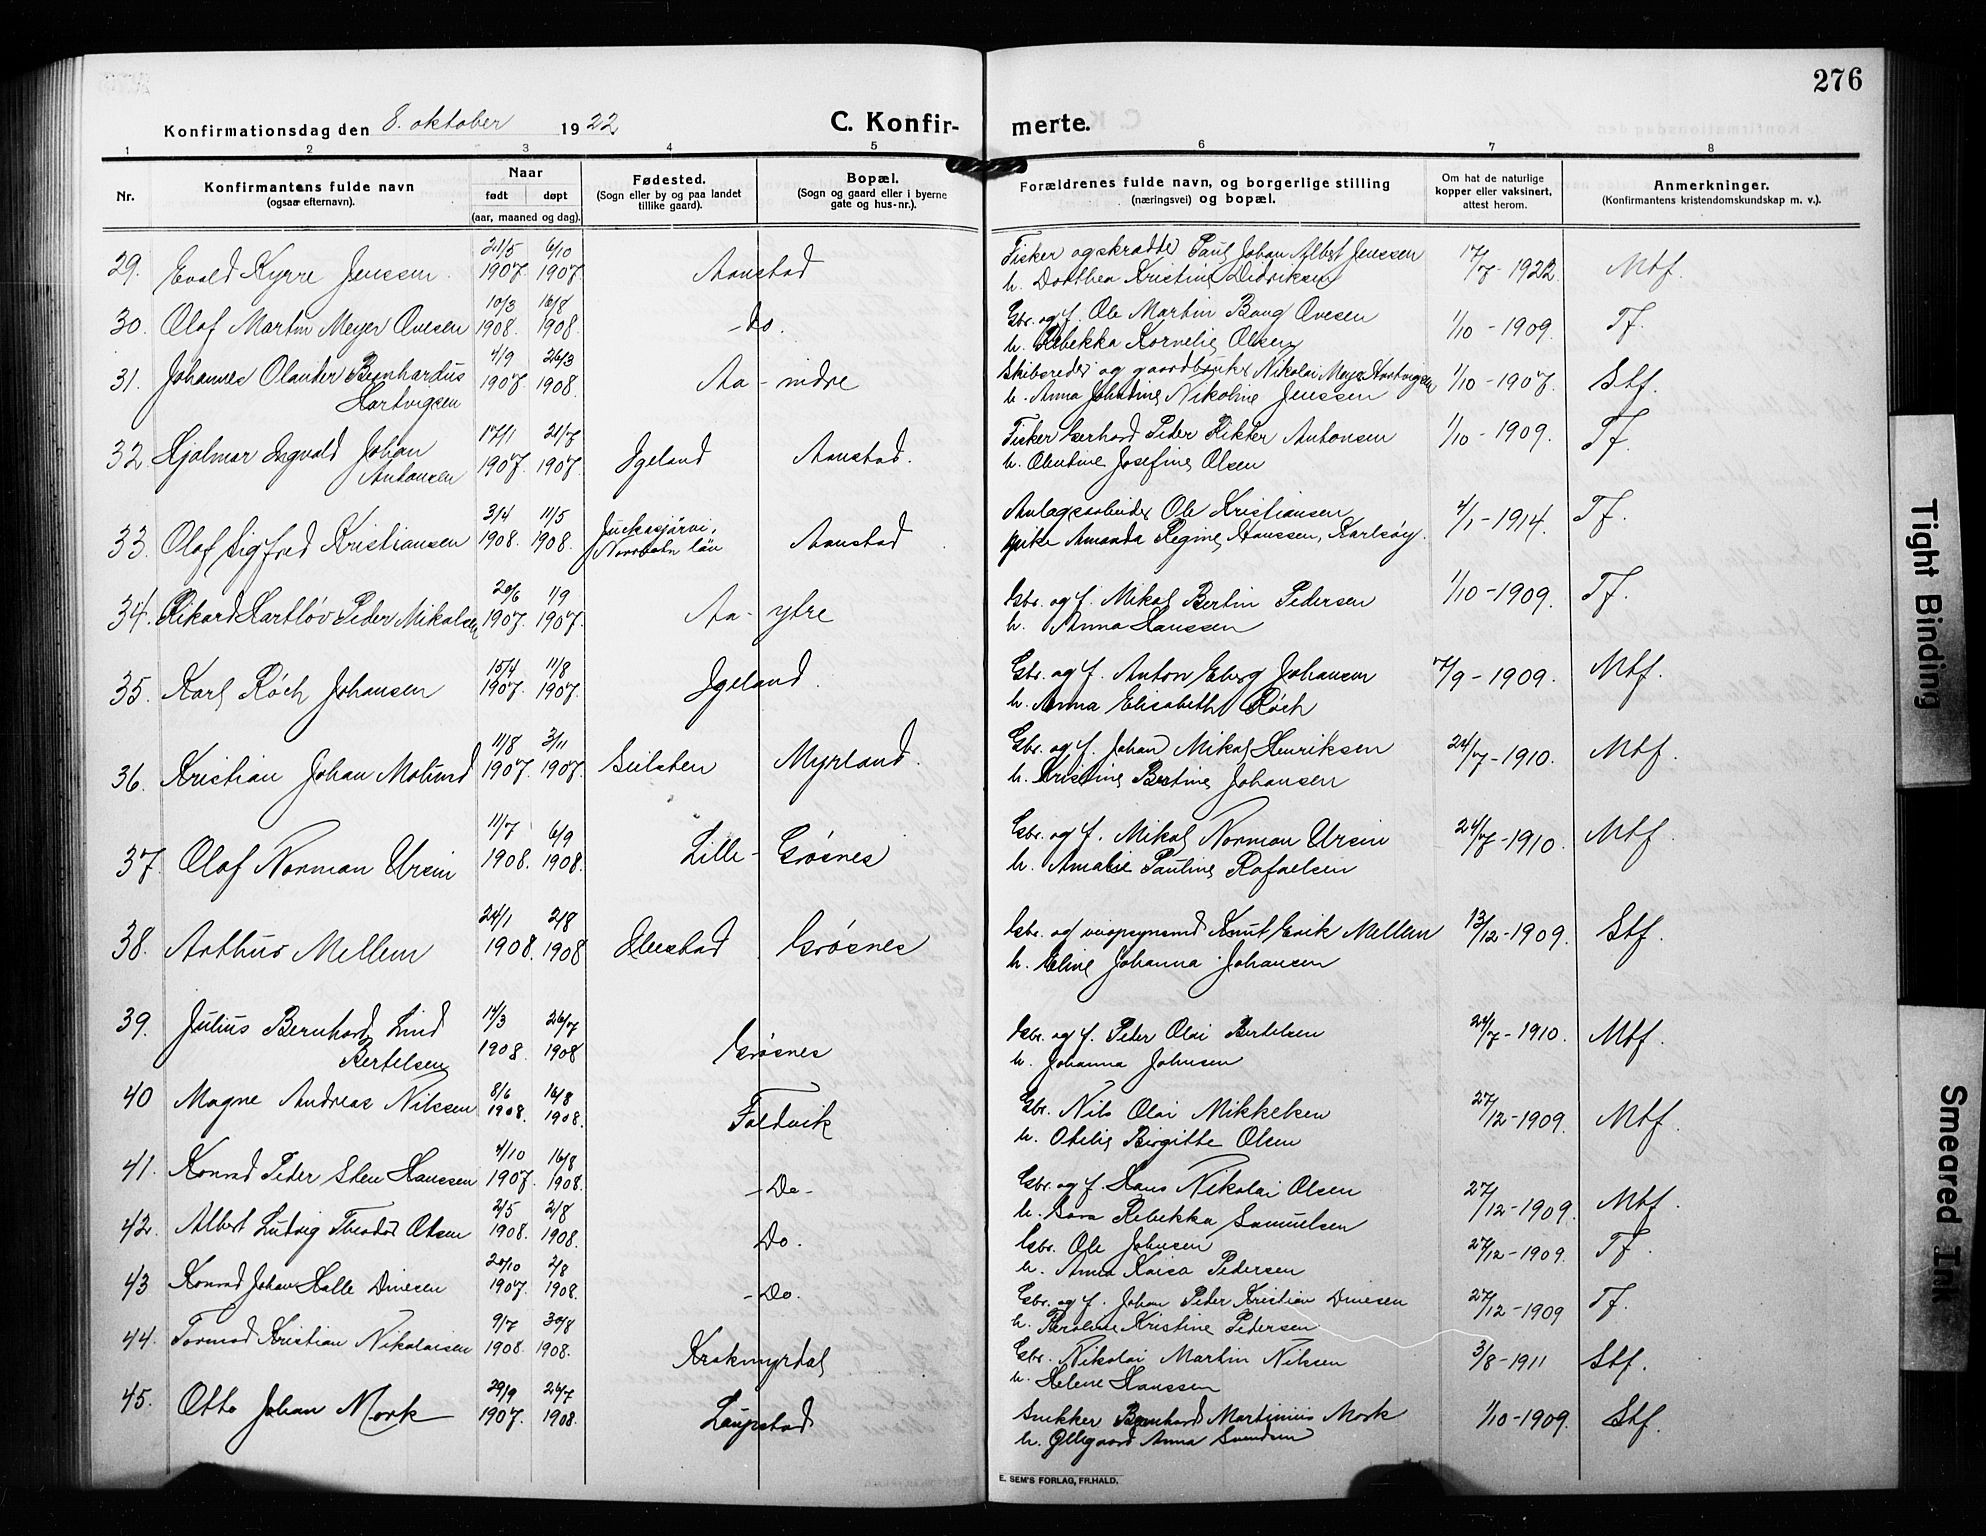 276
Konfirmationsdag den 8. oktober 1922
C. Konfir- merte.
1 2 3 4 5 6 7 8
Nr.
Konfirmantens fulde navn
(ogsaa efternavn).
Naar
født døpt
(aar, maaned og dag).
Fødested.
(Sogn eller by og paa landet
tillike gaard).
Bopæl.
(Sogn og gaard eller i byerne
gate og hus-nr.).
Forældrenes fulde navn, og borgerlige stilling
(næringsvei) og bopæl.
Om hat de naturlige
kopper eller vaksinert,
attest herom.
Anmerkninger.
(Konfirmantens kristendomskundskap m. v.).
29. Evald Kyrre Jenssen 21/5 1907. 6/10 1907. Aanstad
Fisker og skrædder Paul Johan Albert Jenssen
h. Dorthea Kristine Didriksen
17/7-1922. Mtf.
30. Olaf Martin Meyer Ovesen 10/3 1908. 16/8 1908. -Do.
Gbr. og f. Ole Martin Bang Ovesen
h. Rebekka Kornelie Olsen
1/10-1909. Tf.
31. Johannes Olander Bernhardus
Hartvigsen
4/9 1907. 26/3 1908. Aa - indre
Skibsreder og gaardbruker Nikolai Meyer Hartvigsen
h. Anna Nikoline Jenssen
1/10-1907. Stf.
32 Hjalmar Ingvald Johan
Antonsen
17/1 1907. 21/7 1907. Igeland Aanstad.
Fisker Gerhard Peder Rikter Antonsen
h. Olentine Josefine Olsen
1/10-1909. Tf.
33. Olaf Sigfred Kristiansen 3/4 1908. 11/5 1908. Juckasjärvi,
Norrbotn län Aanstad
Anlægsarbeider Ole Kristiansen
pike Amanda Regine Hanssen, Karlsøy.
4/1-1914. Tf.
34. Rikard Hartløv Peder Mikalsen 20/6 1907. 1/9 1907. Aa - ytre
Gbr. og f. Mikal Bertin Pedersen
h. Anna Hanssen
1/10-1909. Tf.
35. Karl Røch Johansen 15/4 1907. 11/8 1907. Igeland.
Gbr. og f. Anton Eberg Johansen
h. Anna Elisabeth Røch
7/9-1909. Mtf.
36. Kristian Johan Molund 11/8 1907. 3/11 1907. Seilsten Myrland.
Gbr. og f. Johan Mikal Henriksen
h. Kristine Bertine Johansen
24/7-1910. Mtf.
37. Olaf Norman Ursin 11/7 1908. 6/9 1908. Lille- Grøsnes
Gbr. og f. Mikal Norman Ursin
h. Amalie Pauline Rafaelsen
24/7-1910. Mtf.
38. Arthur Mellem 24/1 1908. 2/8 1908 Grøsnes
Gbr. og veiopsynsmd Knut Erik Mellem
h. Eline Johanna Johansen
13/12-1909. Stf.
39. Julius Bernhard Lind
Bertelsen
14/3 1908. 26/7 1908 Grøsnes
Gbr. og f. Peder Olai Bertelsen
h. Johanna Johnsen
24/7-1910. Mtf.
40 Magne Andreas Nilssen 8/6 1908. 16/8 1908. Foldvik
Gbr. Nils Olai Mikkelsen
h. Otelie Birgitte Olsen
27/12-1909. Mtf.
41. Konrad Peder Sten Hanssen 4/10 1907. 16/8 1908. -Do-
Gbr. og f. Hans Nikolai Olsen
h. Sara Rebekka Samuelsen
27/12-1909. Mtf.
42. Albert Ludvig Theodor Olsen 2/5 1908. 2/8 1908. Do.
Gbr. Ole Johnsen
h. Anna Kaisa Pedersen
27/12-1909. Tf.
43 Konrad Johan Halle Dinesen 20/10 1907. 2/8 1908. -Do.
Gbr. og f. Johan Peder Kristian Dinesen
h. Karoline Kristine Pedersen
27/12-1909 Tf.
44. Tormod Kristian Nikolaisen 9/7 1908. 30/8 1908. Krakmyrdal
Gbr. Nikolai Martin Nilsen
h. Helene Hanssen
3/8-1911 Stf.
45. Otto Johan Mork 29/9 1907. 26/7 1908. Laupstad
Snekker Bernhard Martinius Mork
h. Øllegaard Anna Svendsen
1/10-1909. Stf.
E. SEM'S FORLAG, FR.HALD.
Tight Binding
Smeared Ink